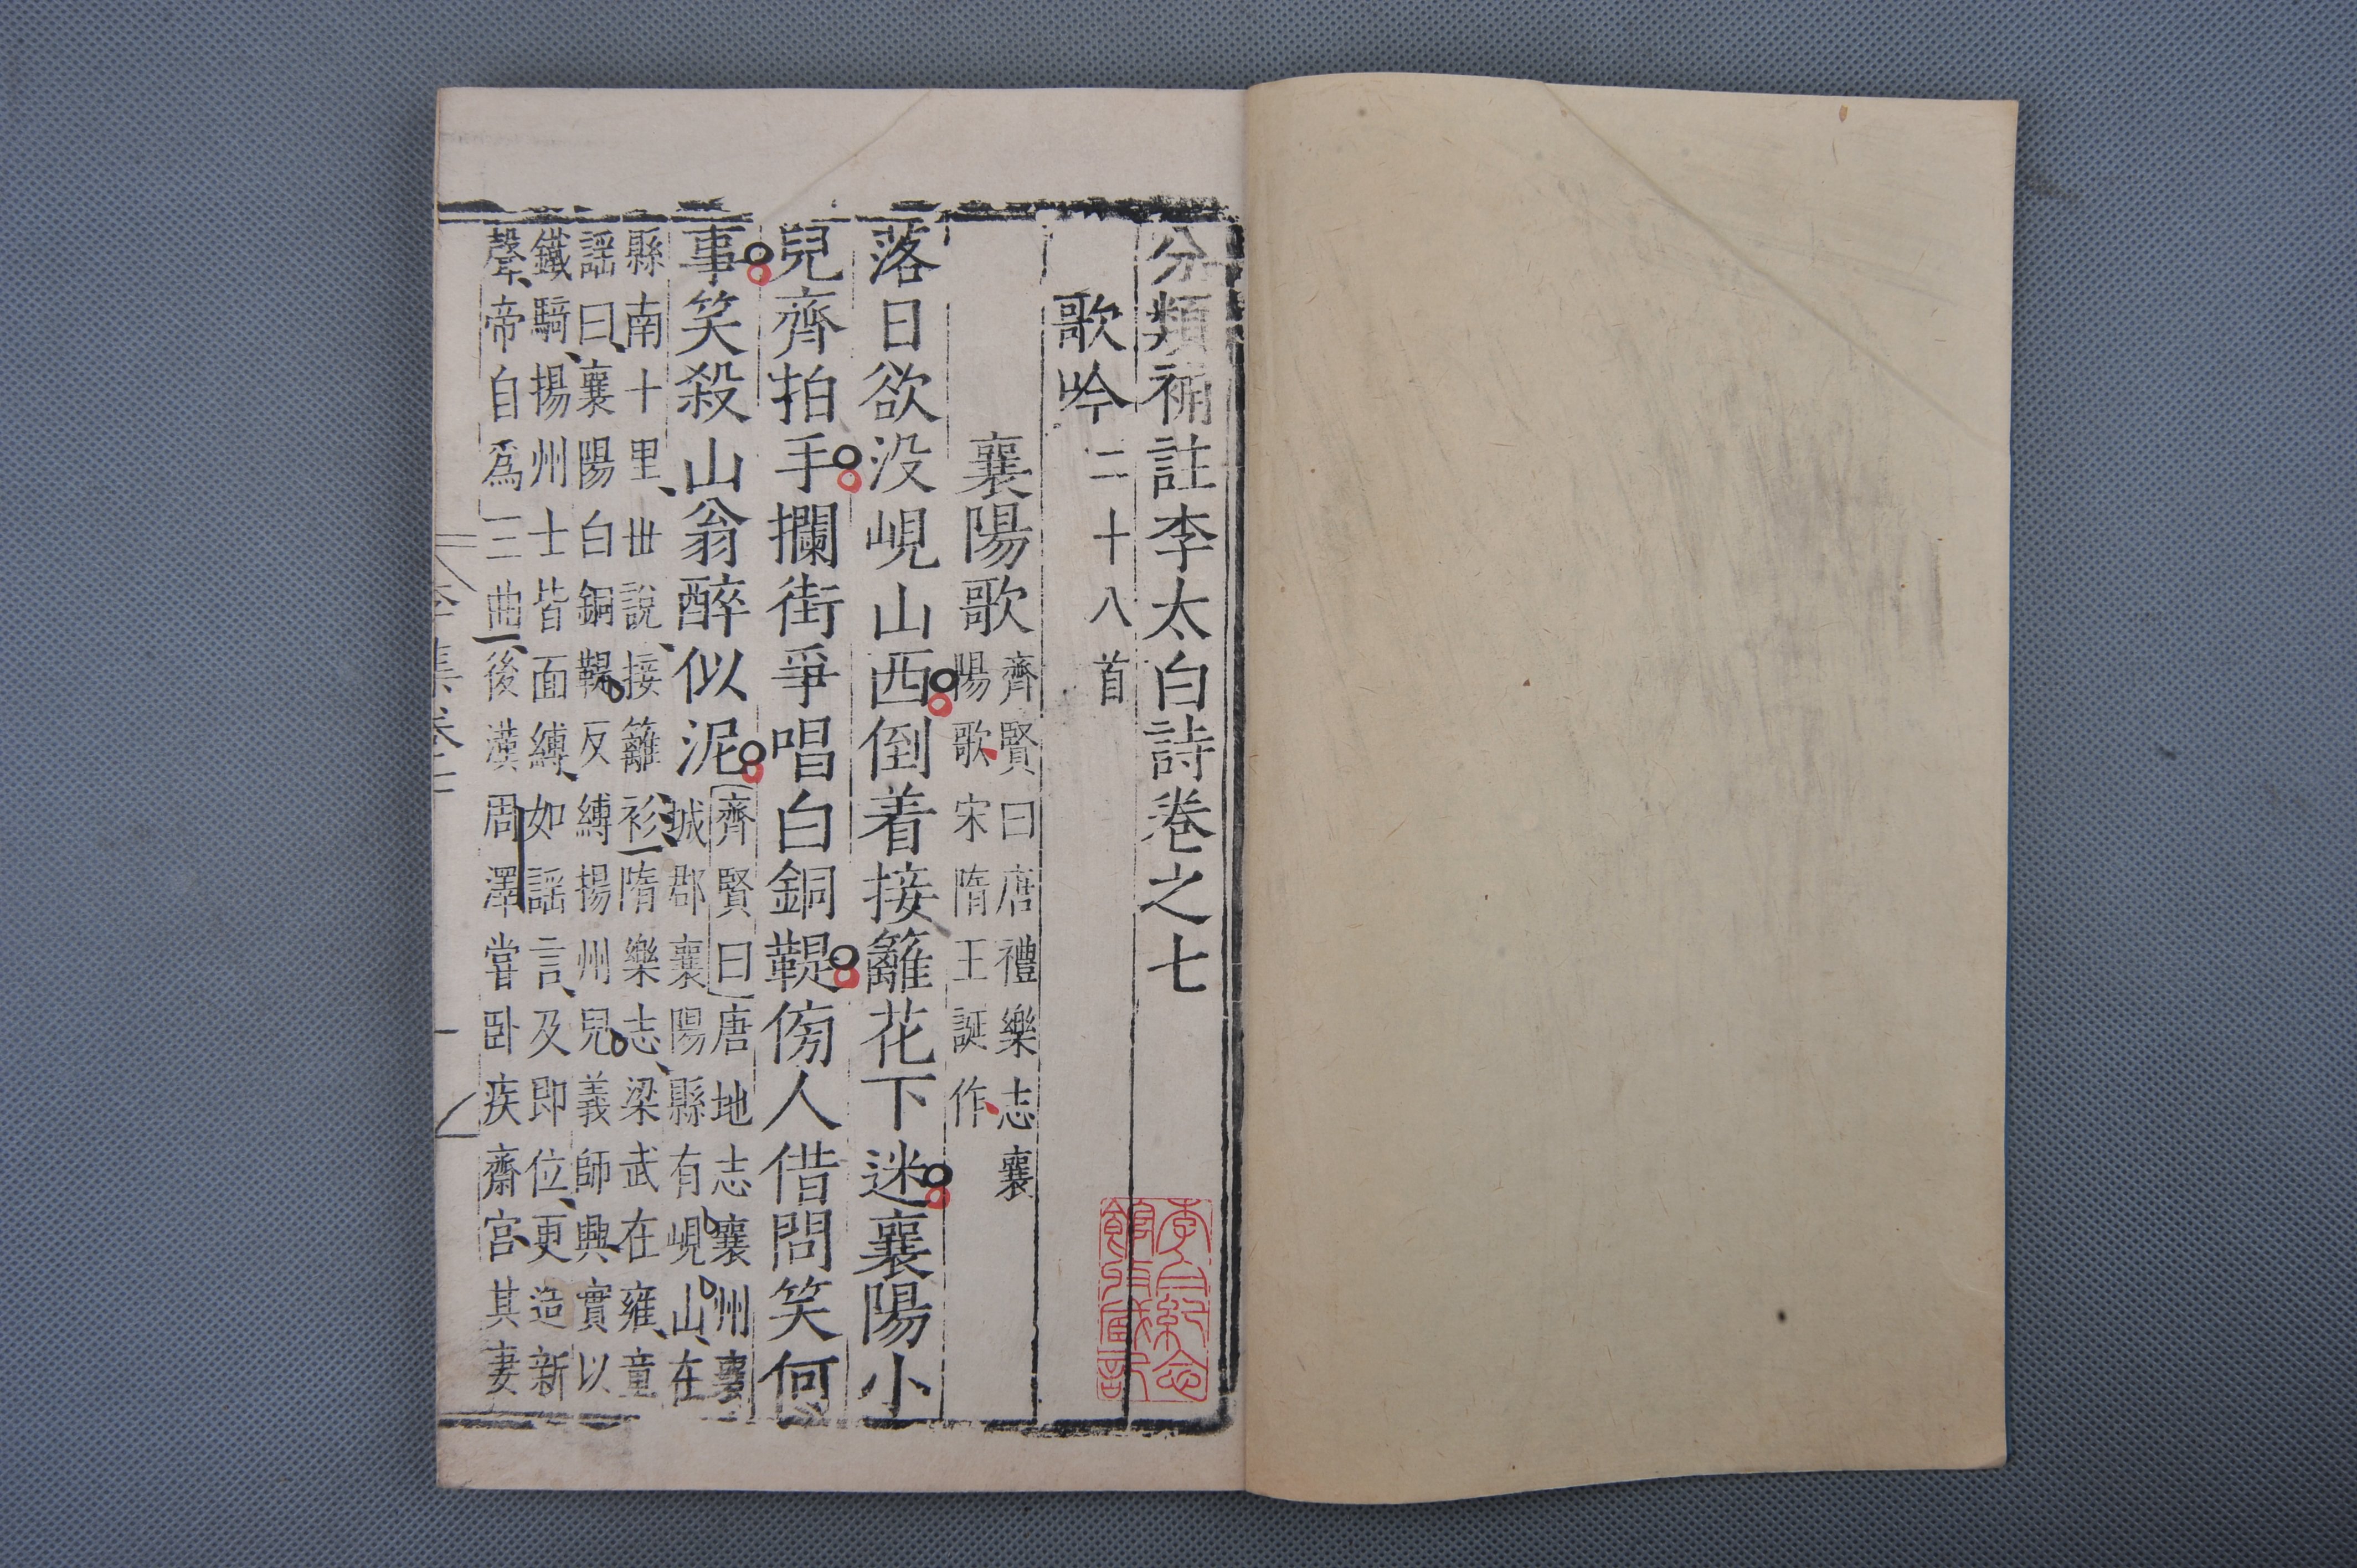 分類補註李太白詩卷之七
歌吟二十八首
襄陽歌
齊賢曰唐禮樂志襄
陽歌宋隋王誕作
落日欲没峴山西倒着接籬花下迷襄陽小
兒齊拍手攔街爭唱白銅鞮傍人借問笑何
事笑殺山翁醉似泥
齊賢曰唐地志襄州襄
城郡襄陽縣有峴山在
縣南十里丗說接籬衫隋樂志梁武在雍童
謡曰襄陽白銅鞮反縛揚州兒義師興實以
鐵騎揚州士皆面縛如謡言及即位更造新
聲帝自爲三曲後漢周澤嘗卧疾齋宫其妻
李白紀念館收藏